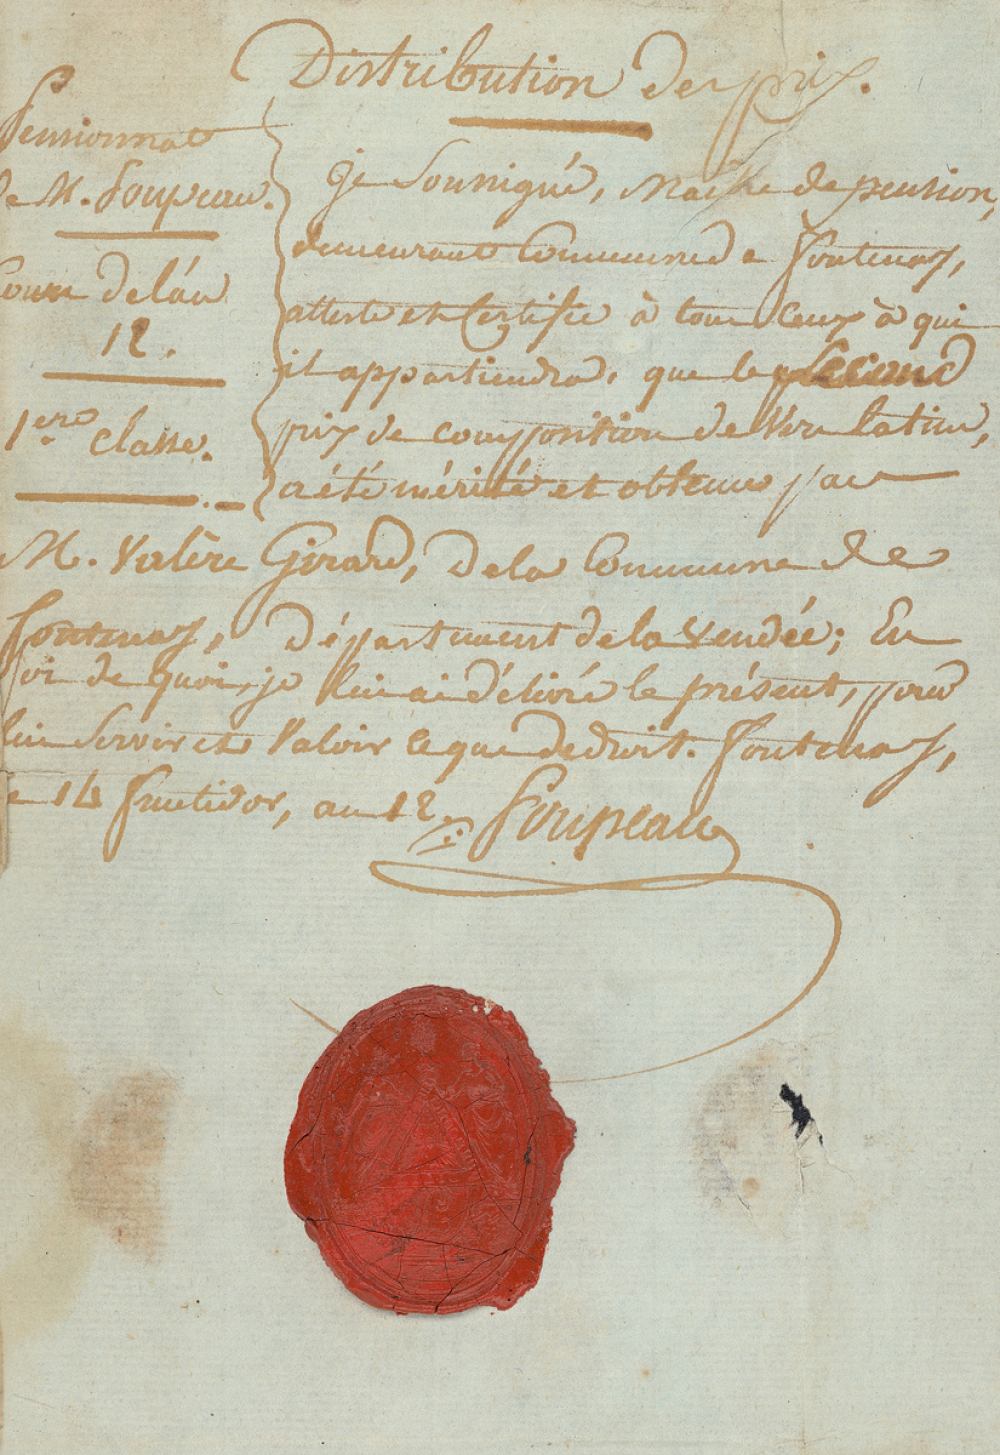 Distribution des prix.
Pensionnat
de M. Soupeau.
Cours de l'an
12.
1ere classe.
je soussigné, Maître de pension,
demeurant Commune de Fontenay,
atteste et Certifie à tous ceux à qui
il appartiendra, que le second
prix de composition de Vers latins,
a été mérité et obtenu par
M. Valère Girard, de la Commune de
Fontenay, Département de la Vendée; En
foi de quoi, je lui ai délivré le présent, pour
lui servir et Valoir ce que de droit. Fontenay,
le 14 fructidor, an 12. Soupeau